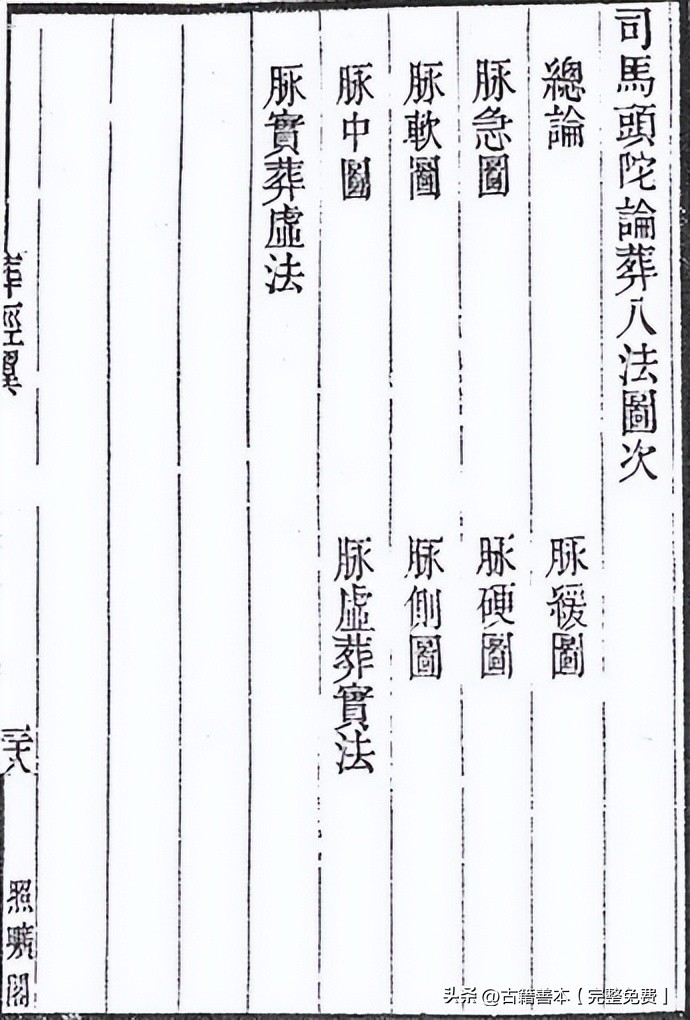 司馬頭陀論葬八法圖次
總論
脉緩圖
脉急圖
脉硬圖
脉軟圖
脉側圖
脉中圖
脉虛葬實法
脉實葬虛法
葬經翼
二十八
照曠閣
头杀 @古籍善本【完整免费】